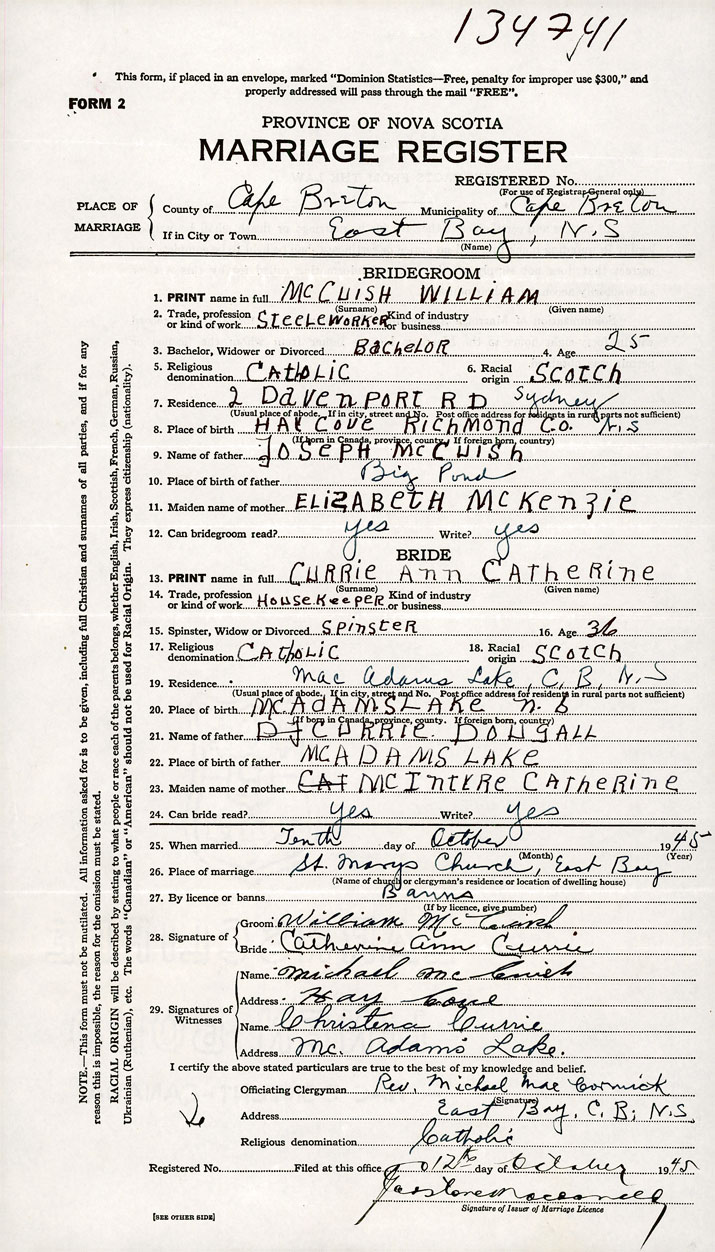 134741
This form, if placed in an envelope, marked "Dominion Statistics—Free, penalty for improper use $300," and
properly addressed will pass through the mail "FREE".
FORM 2
PROVINCE OF NOVA SCOTIA
MARRIAGE REGISTER
REGISTERED No.
(For use of Registrar General only)
PLACE OF MARRIAGE
County of Cape Breton Municipality of Cape Breton
If in City or Town East Bay, N.S
(Name)
BRIDEGROOM
1. PRINT name in full McCUISH WILLIAM
(Surname) (Given name)
2. Trade, profession or kind of work STEELEWORKER Kind of industry or business
3. Bachelor, Widower or Divorced BACHELOR 4. Age 25
5. Religious denomination CATHOLIC 6. Racial origin SCOTCH
7. Residence 2 DAVENPORT RD Sydney
(Usual place of abode. If in city, street and No. Post office address for residents in rural parts not sufficient)
8. Place of birth HAY COVE RICHMOND CO. N.S
(If born in Canada, province, county. If foreign born, country)
9. Name of father JOSEPH McCUISH
10. Place of birth of father Big Pond
11. Maiden name of mother ELIZABETH McKENZIE
12. Can bridegroom read? yes Write? yes
BRIDE
13. PRINT name in full CURRIE ANN CATHERINE
(Surname) (Given name)
14. Trade, profession or kind of work HOUSEKEEPER Kind of industry or business
15. Spinster, Widow or Divorced SPINSTER 16. Age 36
17. Religious denomination CATHOLIC 18. Racial origin SCOTCH
19. Residence Mac Adams Lake, C, B, N.S
(Usual place of abode. If in city, street and No. Post office address for residents in rural parts not sufficient)
20. Place of birth MCADAMSLAKE
(If born in Canada, province, county. If foreign born, country)
21. Name of father CURRIE DOUGALL
22. Place of birth of father MCADAMS LAKE
23. Maiden name of mother CAT MCINTYRE CATHERINE
24. Can bride read? yes Write? yes
25. When married Tenth day of October 1945
(Month) (Year)
26. Place of marriage St. Marys Church, East Bay
(Name of church or clergyman's residence or location of dwelling house)
27. By licence or banns Banns
(If by licence, give number)
28. Signature of
Groom William McCuish
Bride Catherine Ann Currie
29. Signatures of Witnesses
Name Michael McCuish
Address Hay Cove
Name Christena Currie
Address Mc. Adams Lake.
I certify the above stated particulars are true to the best of my knowledge and belief.
Officiating Clergyman Rev. Michael MacCormick
(Signature)
Address East Bay, C. B; N.S.
Religious denomination Catholic
Registered No. Filed at this office 12th day of October 1945
Signature of Issuer of Marriage Licence
[SEE OTHER SIDE]
NOTE.—This form must not be mutilated. All information asked for is to be given, including full Christian and surnames of all parties, and if for any
reason this is impossible, the reason for the omission must be stated.
RACIAL ORIGIN will be described by stating to what people or race each of the parents belongs, whether English, Irish, Scottish, French, German, Russian,
Ukrainian (Ruthenian), etc. The words "Canadian" or "American" should not be used for Racial Origin. They express citizenship (nationality).